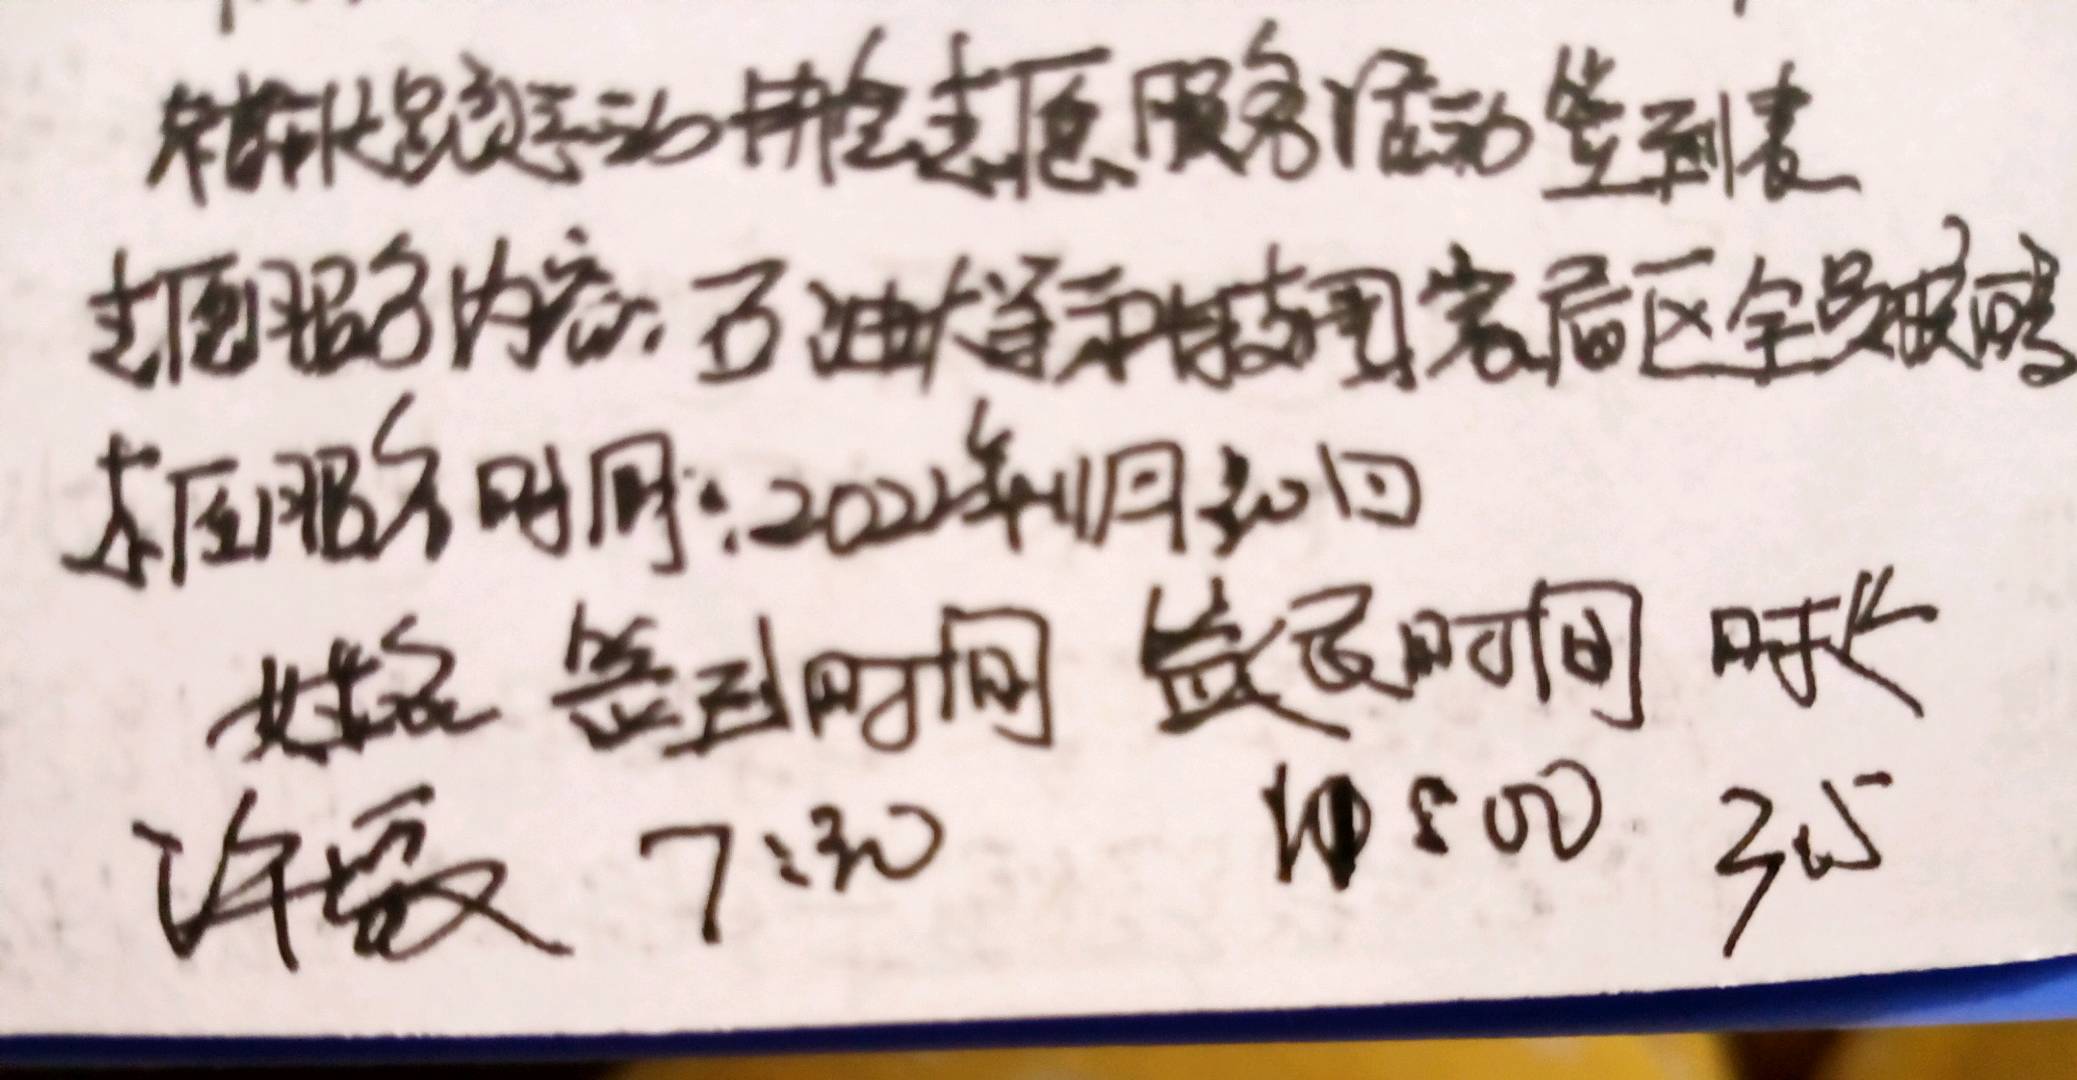 志愿服务活动签到表
志愿服务内容：石油大学科技园家居区全员核酸
志愿服务时间：2022年11月30日
姓名 签到时间 签退时间 时长
许媛 7:30 11:00 3.5